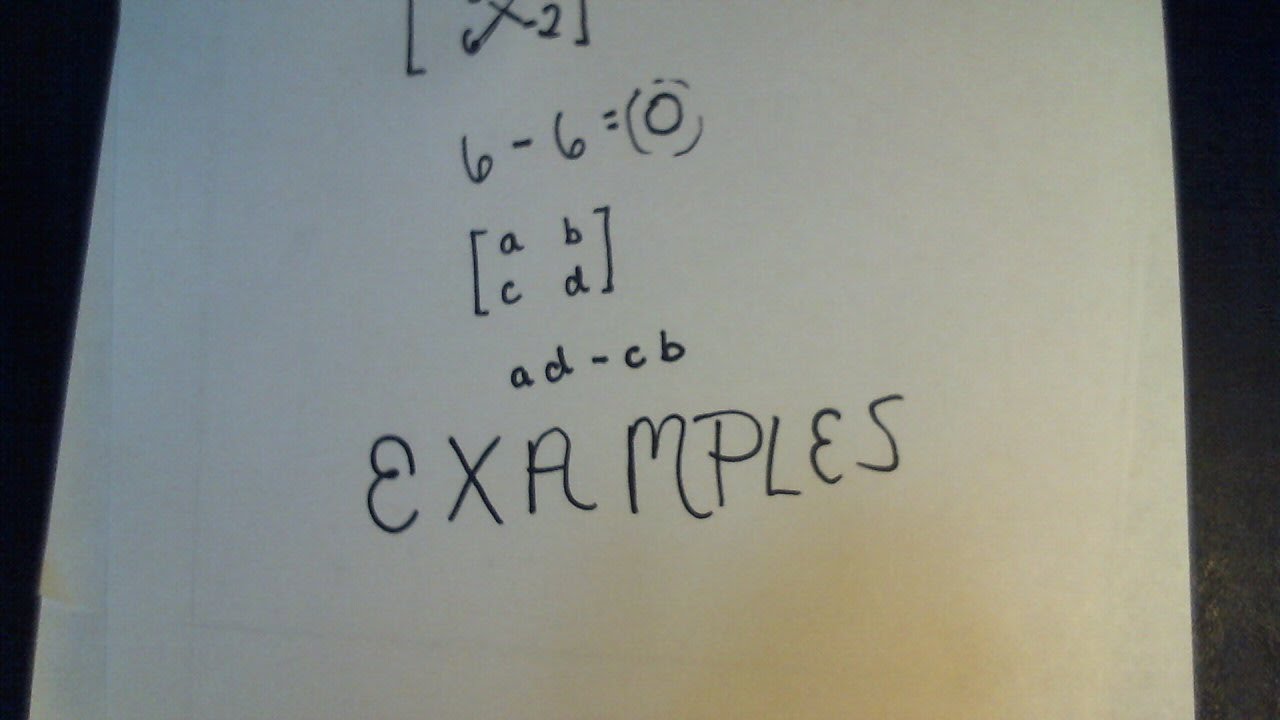 [ 6 -2 ]
6 - 6 = (0)
[ a b
c d ]
ad - cb
EXAMPLES